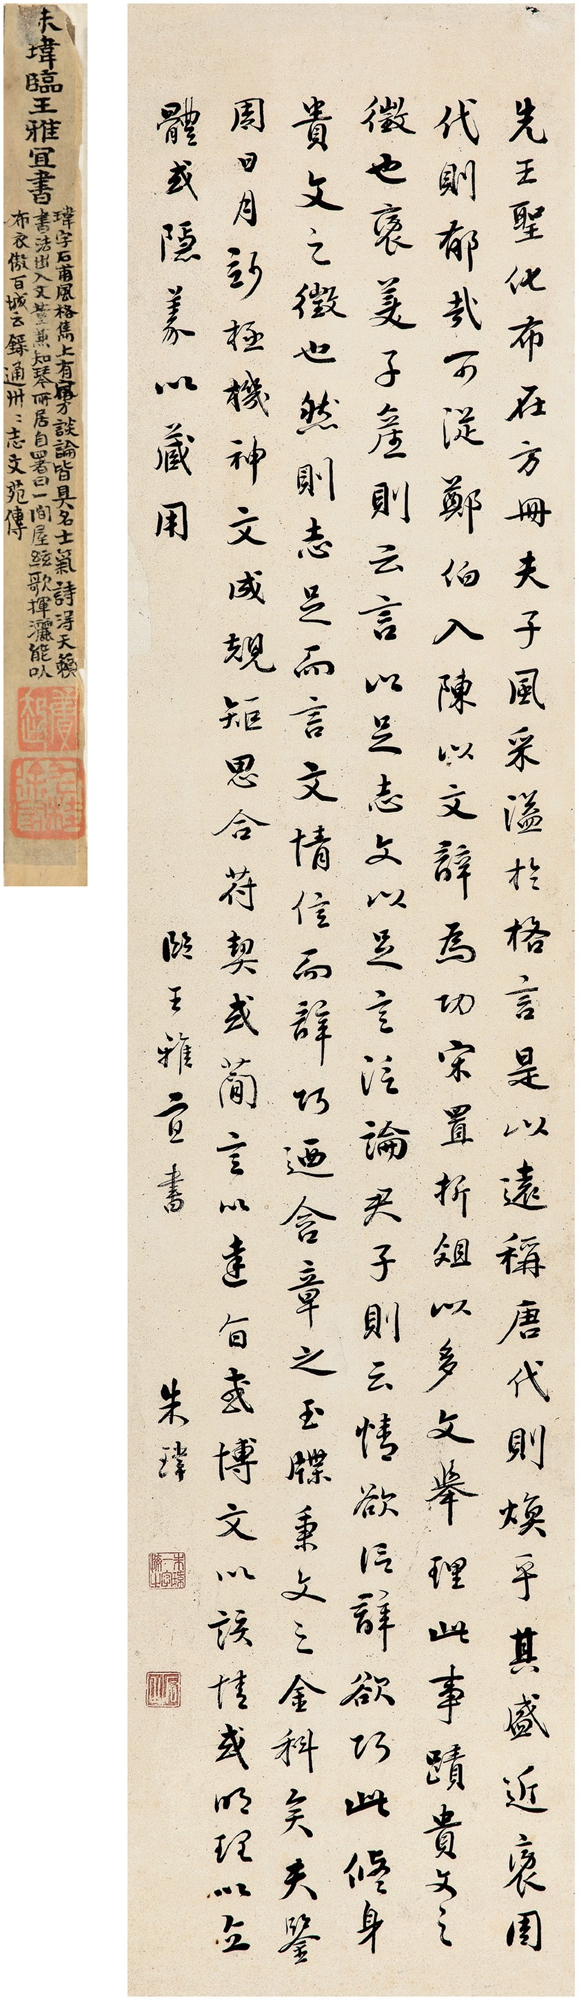 先王聖化布在方冊夫子風采溢於格言是以遠稱唐代則煥乎其盛近褒周
代則郁哉可從鄭伯入陳以文辭為功宋置折俎以多文舉理此事蹟貴文之
徵也褒美子產則云言以足志文以足言泛論君子則云情欲信辭欲巧此修身
貴文之徵也然則志足而言文情信而辭巧迺含章之玉牒秉文之金科矣夫鑒
周日月玅極機神文成規矩思合符契或簡言以達旨或博文以該情或明理以立
體或隱義以藏用
臨王雅宜書
朱瑋
朱瑋臨王雅宜書
瑋字石甫風格雋上有穿談論皆具名士氣詩得天籟
書法出入文董兼知琴所居自署曰一間屋絃歌揮灑能以
布衣傲百城云錄通州志文苑傳